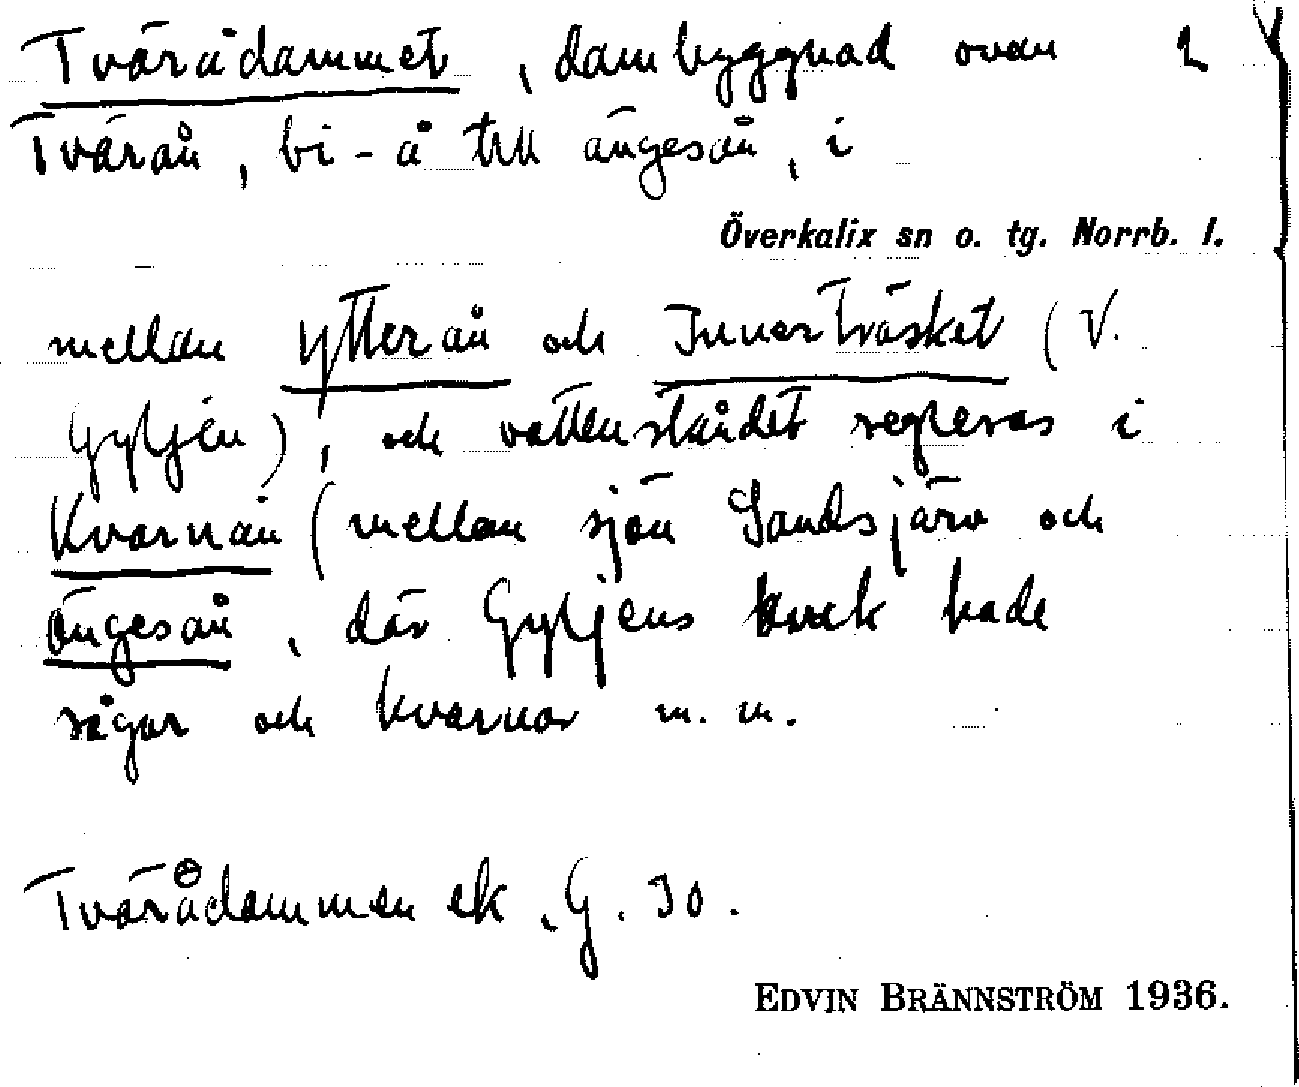 Tvärådammet, dambyggnad ovan 2
Tvärån, bi-å till ängesån, i
Överkalix sn o. tg. Norrb. l.
mellan Ytterån och Innerträsket (V.
Gyljen), och vattenståndet regleras i
Kvarnån (mellan sjön Sandsjärv och
ängesån, där Gyljens bruk hade
sågar och kvarnar m. m.
Tvärådammen ek. G. 30.
EDVIN BRÄNNSTRÖM 1936.